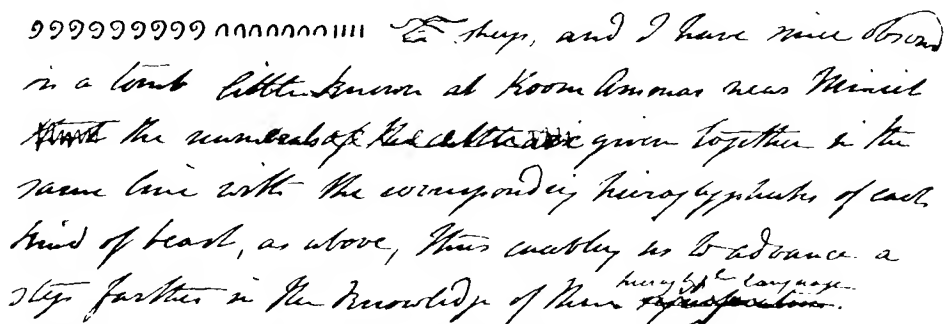 𓍢𓍢𓍢𓍢𓍢𓍢𓍢𓍢𓍢 𓎆𓎆𓎆𓎆𓎆𓎆𓎆 𓏺𓏺𓏺𓏺 sheep, and I have since observed
in a tomb little known at Koom near Minieh
the numerals of the cattle are given together in the
same line with the corresponding hieroglyphics of each
kind of beast, as above, thus enabling us to advance a
step farther in the knowledge of their language.